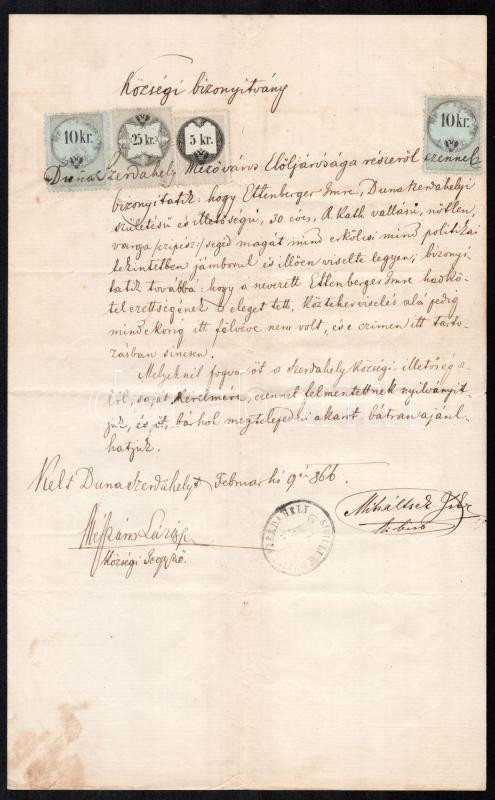 Községi bizonyitvány
10 kr. 25 kr. 5 kr. 10 kr.
Duna Szerdahely Mezőváros Elöljárósága részéről ezennel
bizonyitatik: hogy Ettenberger Imre, Dunaszerdahelyi
születésü és illetőségü, 30 éves, R. Kath. vallásu, nőtlen,
varga /czipész/ segéd magát mind erkölcsi mind politikai
tekintetben jámborul és illően viselte legyen; bizonyi
tatik továbbá: hogy a nevezett Ettenberger Imre hadkö-
telezettségének is eleget tett, közteherviselés alá pedig
mind ekorig itt fölvéve nem volt, és e czimen itt tarto-
zásban sincsen.
Melyeknél fogva őt a Szerdahely községi illetőség a-
lól, saját kérelmére, ezennel felmentettnek nyilványit-
juk, és őt, bárhol megtelepedni akart bátran ajánl-
hatjuk.
Kelt Dunaszerdahelyt Februar hó 9én 866.
Miháltsek
községi Jegyző.